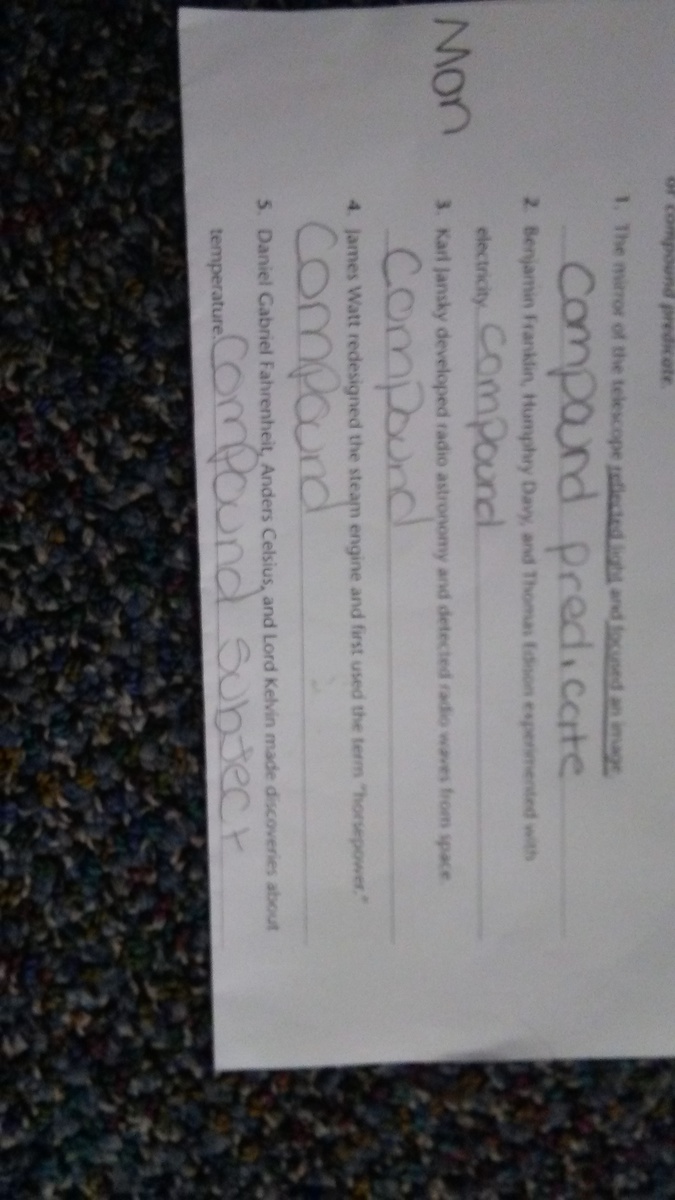 or compound predicate.
1. The mirror of the telescope reflected light and focused an image.
compound predicate
2. Benjamin Franklin, Humphry Davy, and Thomas Edison experimented with
electricity. compound
Mon
3. Karl Jansky developed radio astronomy and detected radio waves from space.
compound
4. James Watt redesigned the steam engine and first used the term "horsepower."
compound
5. Daniel Gabriel Fahrenheit, Anders Celsius, and Lord Kelvin made discoveries about
temperature. compound subject